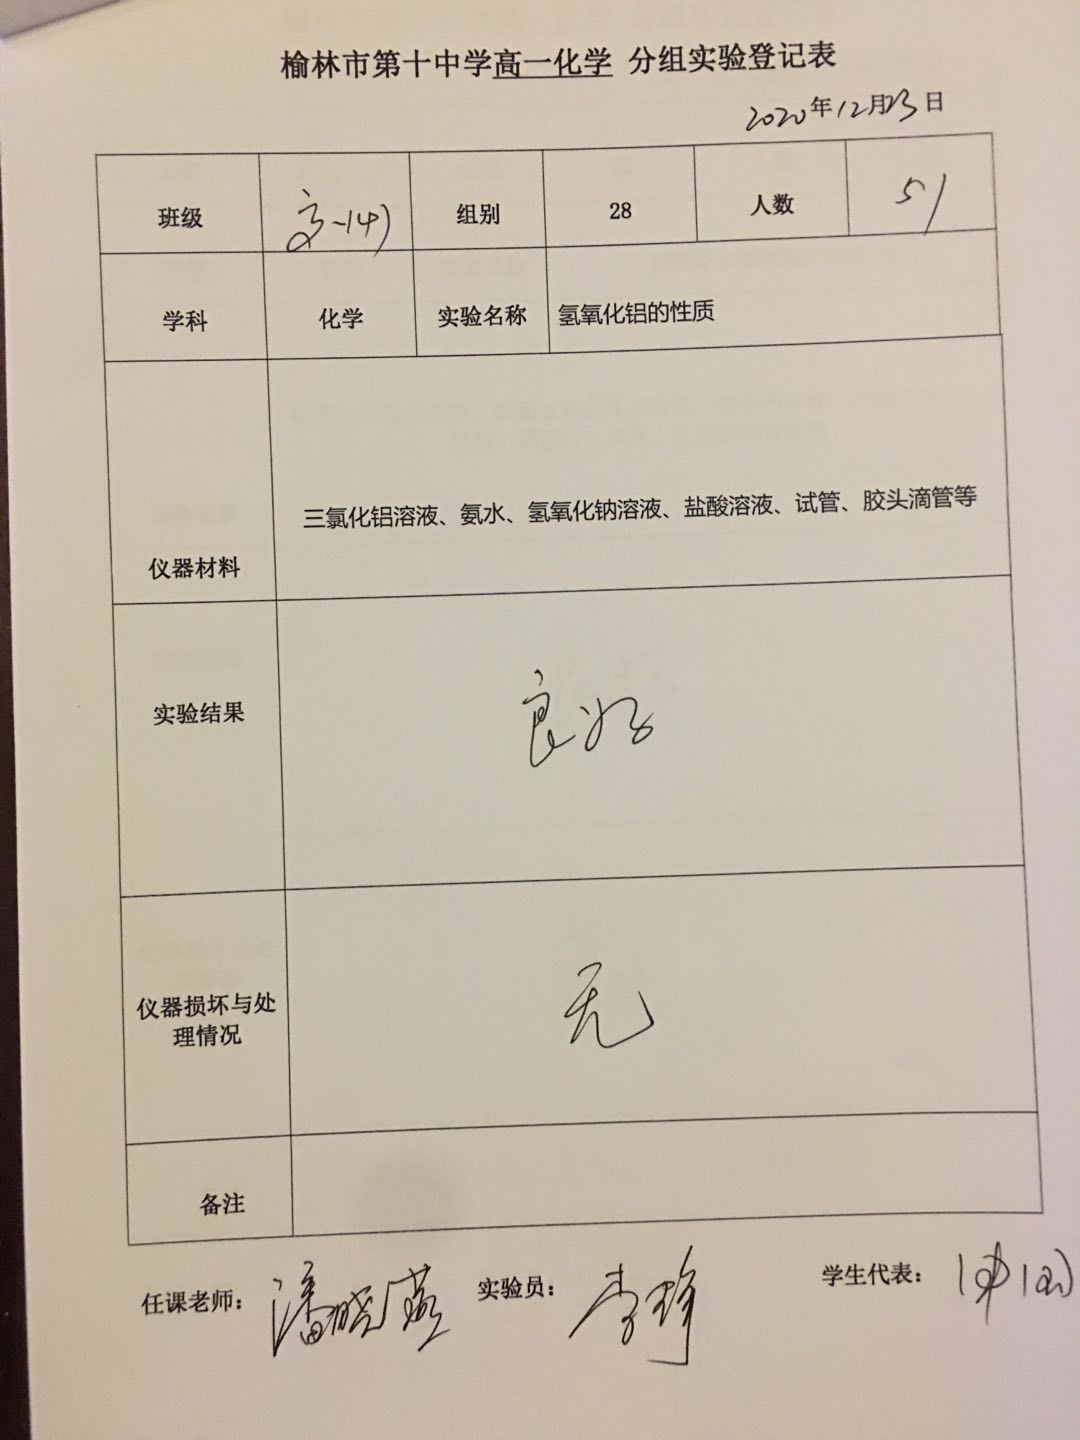 榆林市第十中学高一化学 分组实验登记表
2020年12月23日
班级 高一(4) 组别 28 人数 51
学科 化学 实验名称 氢氧化铝的性质
三氯化铝溶液、氨水、氢氧化钠溶液、盐酸溶液、试管、胶头滴管等
仪器材料
实验结果 良好
仪器损坏与处
理情况
无
备注
任课老师：潘晓燕 实验员：李锋 学生代表：